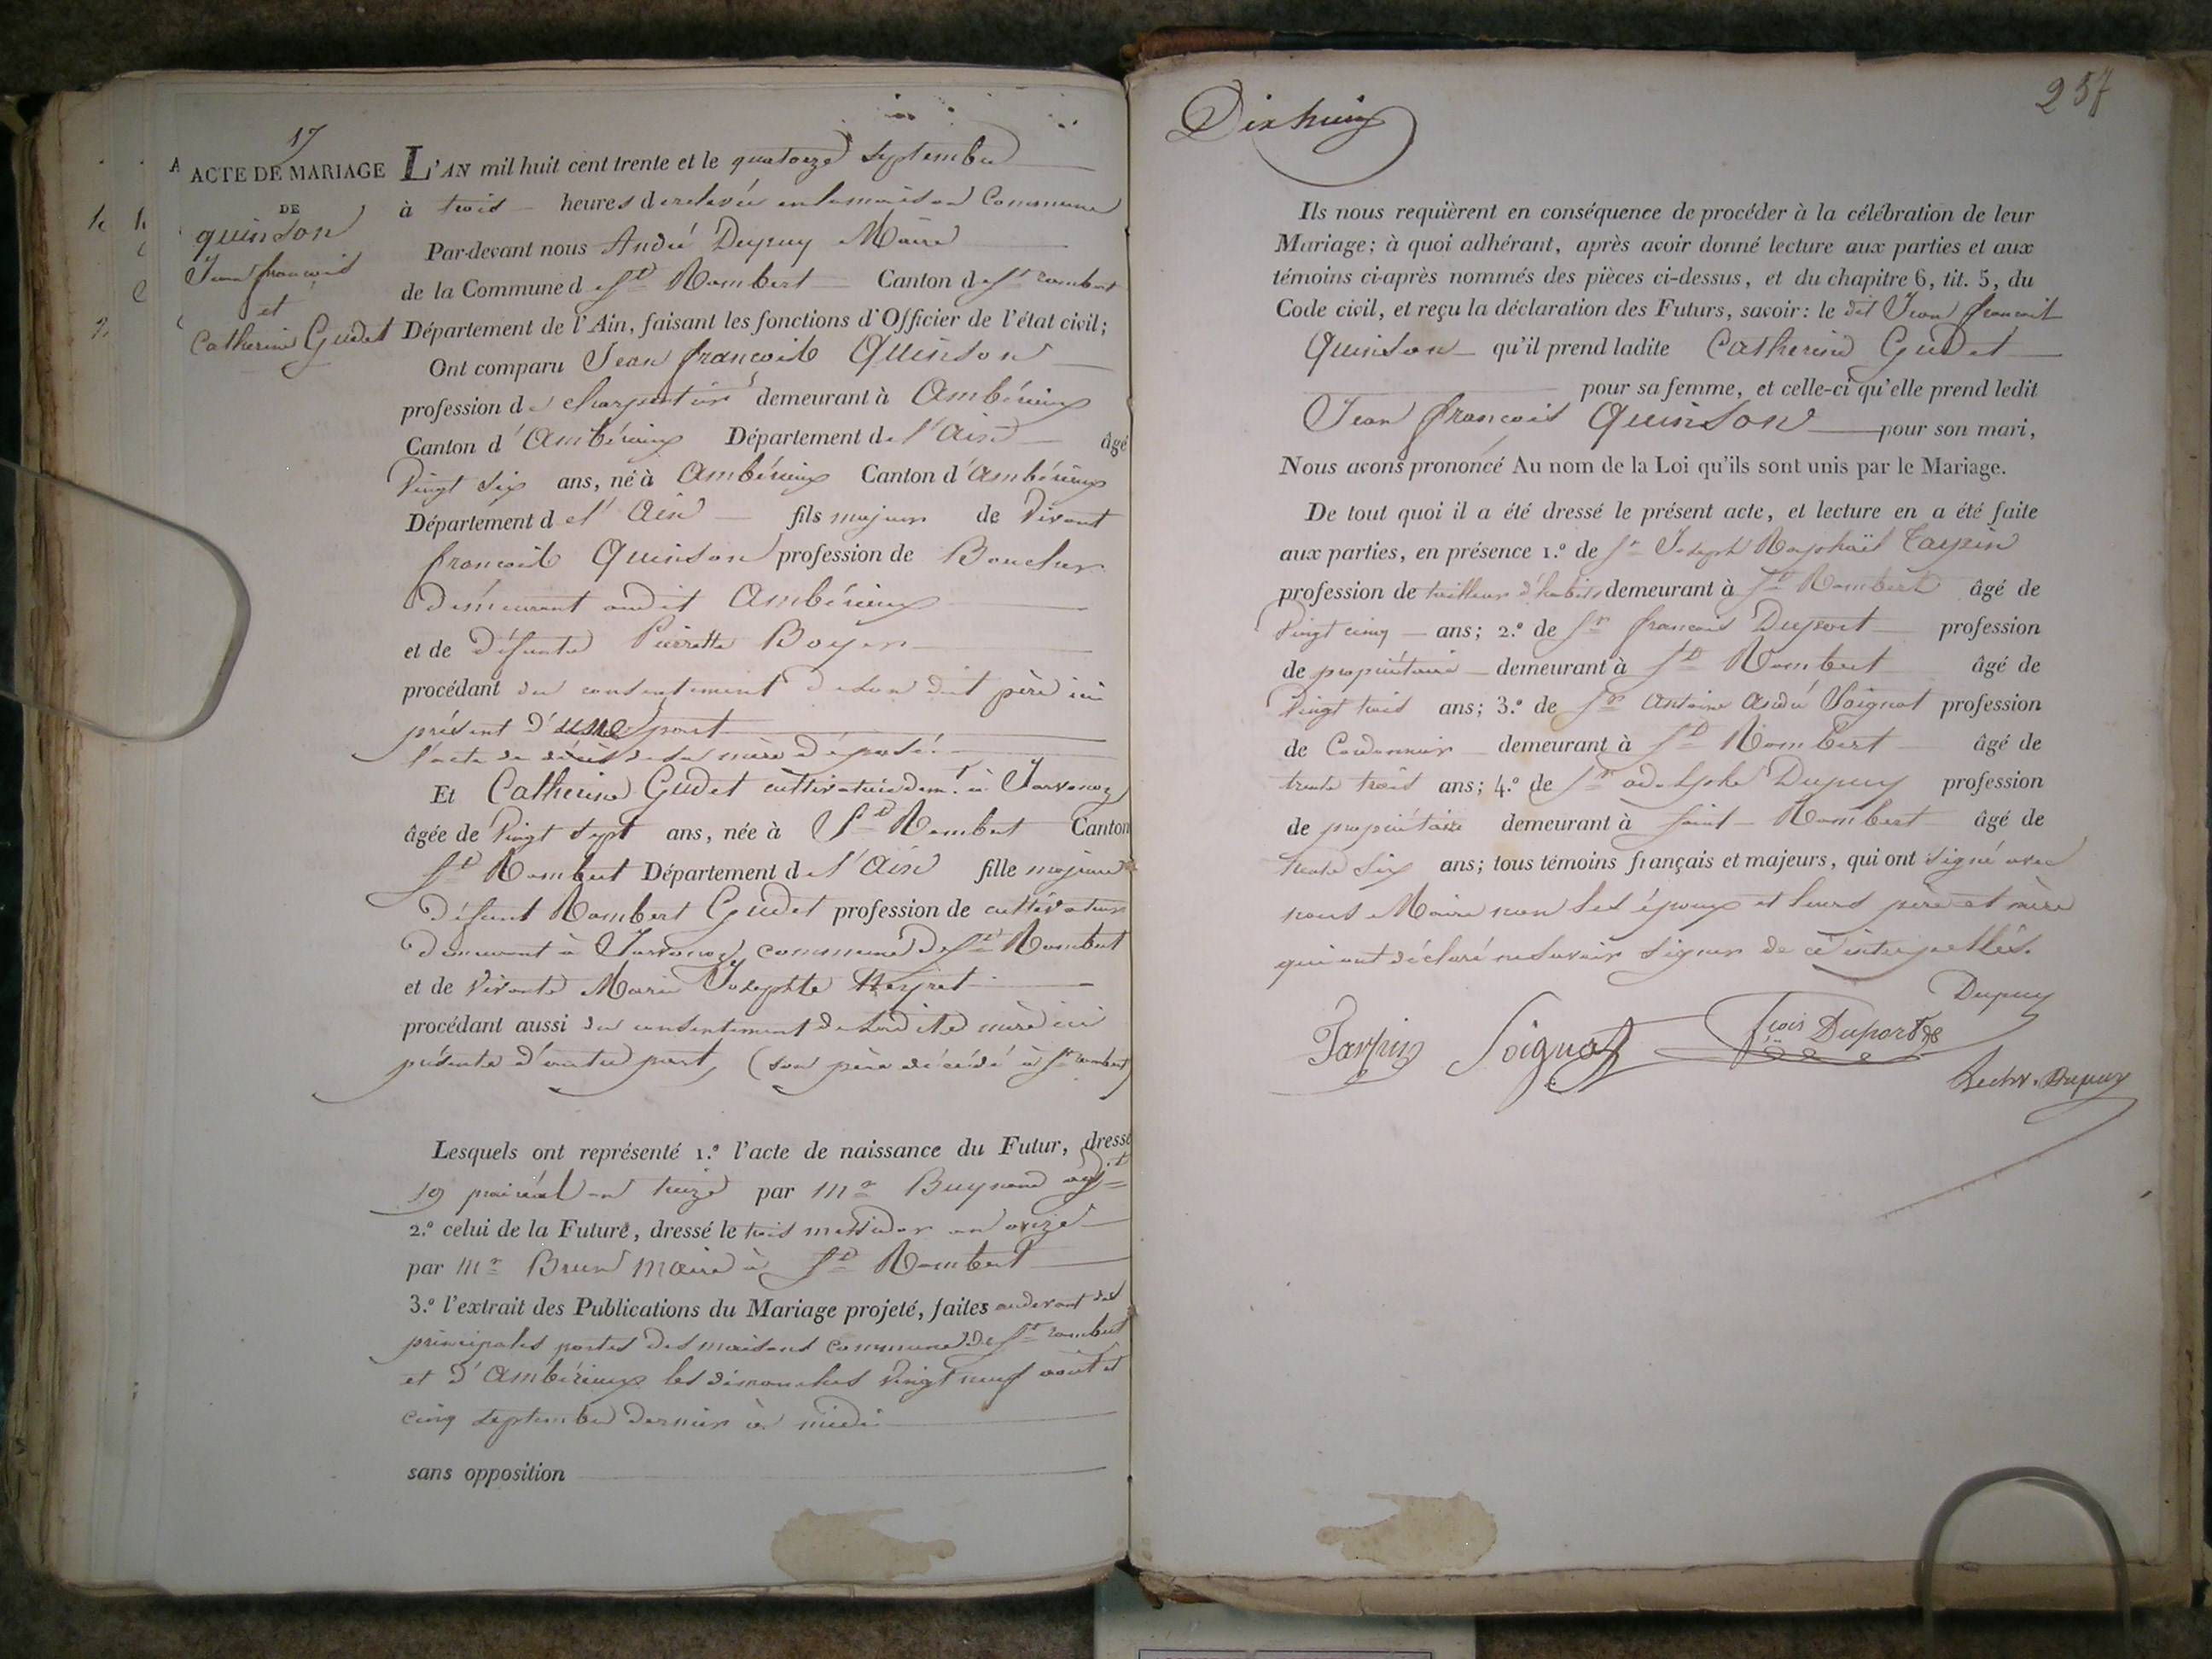 17
ACTE DE MARIAGE
DE
quinson
Jean françois
et
Catherine Gudet
L'AN mil huit cent trente et le quatorze septembre
à trois heures de relevée en la maison Commune
Par-devant nous André Dupuy Maire
de la Commune de St Rambert Canton de St rambert
Département de l'Ain, faisant les fonctions d'Officier de l'état civil;
Ont comparu Jean françois Quinson
profession de charpentier demeurant à Ambérieux
Canton d'Ambérieux Département de l'Ain âgé
Vingt six ans, né à Ambérieux Canton d'Ambérieux
Département de l'Ain fils majeur de Vivant
françois Quinson profession de Boucher
demeurant audit Ambérieux
et de défunte Pierrette Boyer
procédant du consentement de son dit père ici
présent d'une part
l'acte de décès de sa mère déposé.
Et Catherine Gudet cultivatrice demt. à
âgée de Vingt sept ans, née à St Rambert Canton
St Rambert Département de l'Ain fille majeure
défunt Rambert Gudet profession de cultivateur
demeurant à commune de St Rambert
et de Vivante Marie Josephte
procédant aussi du consentement de sa dite mère ici
présente d'autre part, (son père décédé à St rambert)
Lesquels ont représenté 1.º l'acte de naissance du Futur, dressé
19 prairial an treize par Mr
2.º celui de la Future, dressé le trois messidor an onze
par Mr Brun Maire à St Rambert
3.º l'extrait des Publications du Mariage projeté, faites audevant des
principales portes des maisons commune de St rambert
et d'Ambérieux les dimanches Vingt neuf août et
cinq septembre dernier à midi
sans opposition
257
Dix huit
Ils nous requièrent en conséquence de procéder à la célébration de leur
Mariage; à quoi adhérant, après avoir donné lecture aux parties et aux
témoins ci-après nommés des pièces ci-dessus, et du chapitre 6, tit. 5, du
Code civil, et reçu la déclaration des Futurs, savoir: le dit Jean françois
Quinson qu'il prend ladite Catherine Gudet
pour sa femme, et celle-ci qu'elle prend ledit
Jean françois Quinson pour son mari,
Nous avons prononcé Au nom de la Loi qu'ils sont unis par le Mariage.
De tout quoi il a été dressé le présent acte, et lecture en a été faite
aux parties, en présence 1.º de Sr Joseph Raphaël Tarpin
profession de tailleur d'habits demeurant à St Rambert âgé de
Vingt cinq ans; 2.º de Sr françois Duport profession
de propriétaire demeurant à St Rambert âgé de
Vingt trois ans; 3.º de Sr Antoine André Soignat profession
de Cordonnier demeurant à St Rambert âgé de
trente trois ans; 4.º de Sr adolphe Dupuy profession
de propriétaire demeurant à Saint Rambert âgé de
trente six ans; tous témoins français et majeurs, qui ont signé avec
nous Maire non les époux et leurs père et mère
qui ont déclaré ne savoir signer de ce interpellés.
Dupuy
Tarpin Soignat fçois Duport
Dupuy